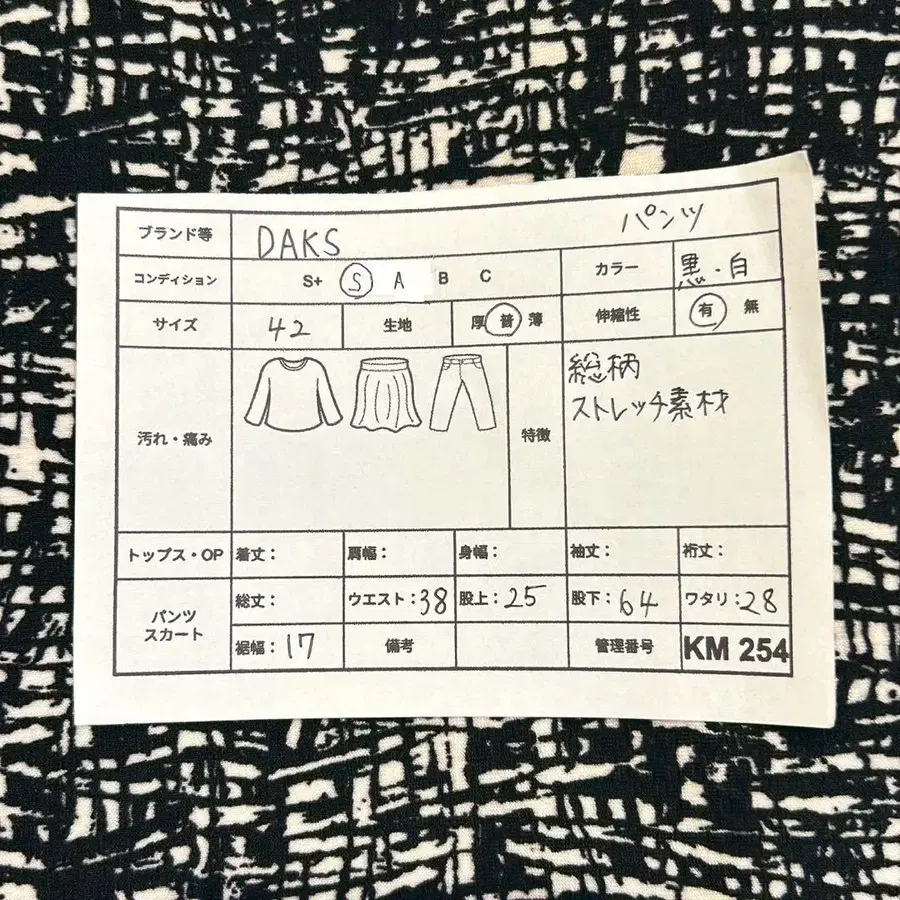 ブランド等 DAKS パンツ
コンディション S+ S A B C カラー 黒・白
サイズ 42 生地 厚 普 薄 伸縮性 有 無
汚れ・痛み 特徴 総柄
ストレッチ素材
トップス・OP 着丈: 肩幅: 身幅: 袖丈: 裄丈:
パンツ
スカート
総丈: ウエスト:38 股上:25 股下:64 ワタリ:28
裾幅:17 備考 管理番号 KM 254